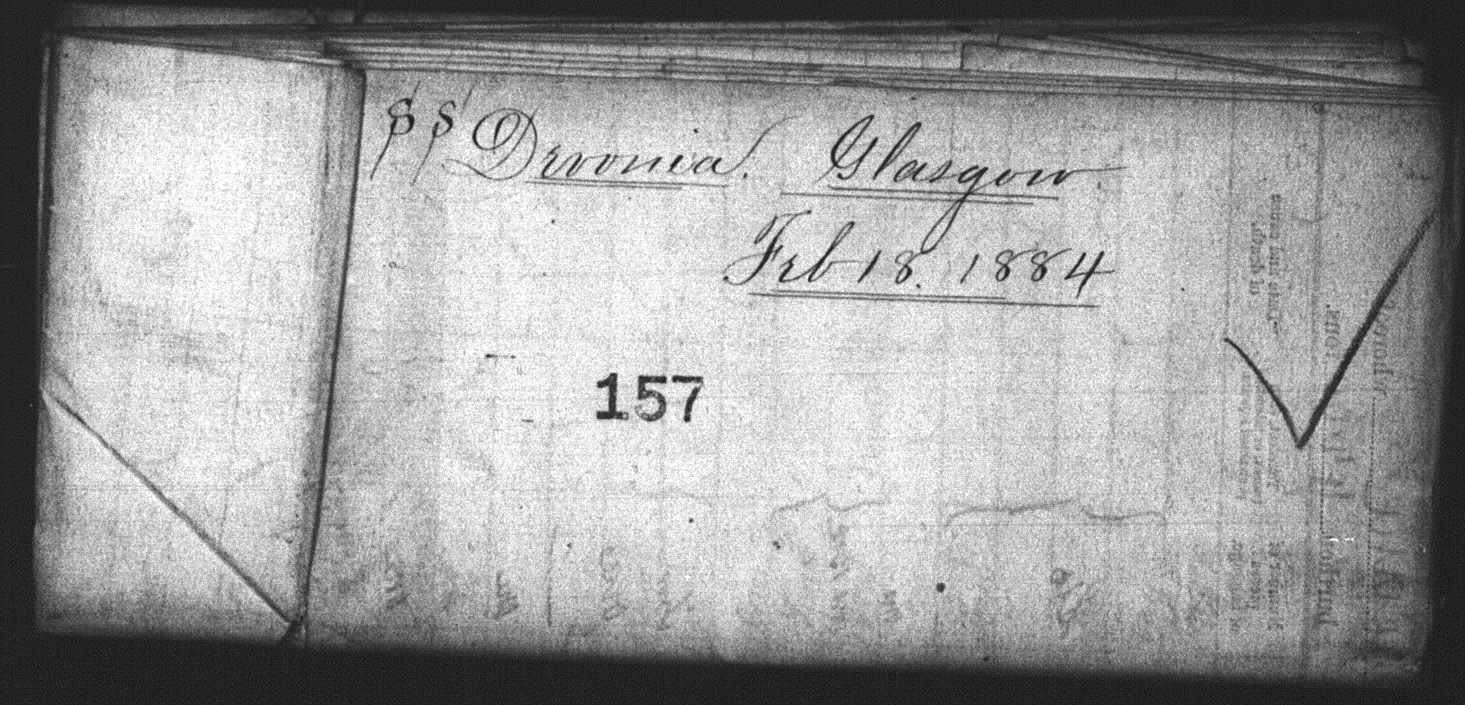 SS Devonia. Glasgow
Feb 18. 1884
157